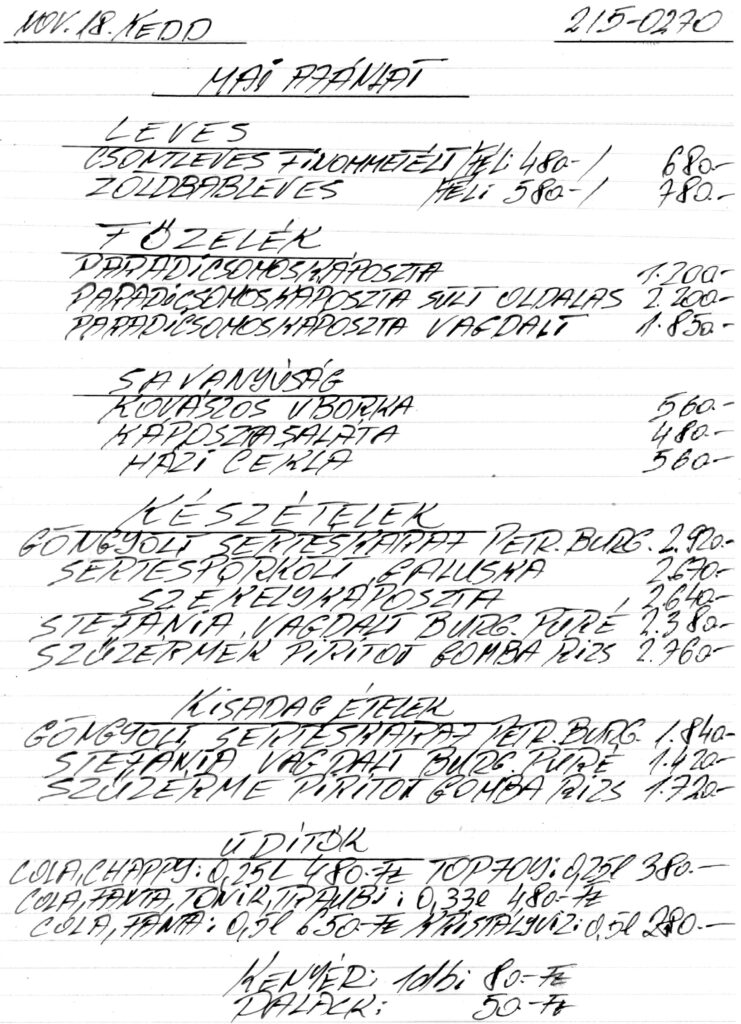 NOV. 18. KEDD 215-0270
MAI AJÁNLAT
LEVES
CSONTLEVES FINOMMETÉLT /FÉL: 480.-/ 680.-
ZÖLDBABLEVES /FÉL: 580.-/ 780.-
FŐZELÉK
PARADICSOMOSKÁPOSZTA 1.200.-
PARADICSOMOSKÁPOSZTA SÜLT OLDALAS 2.200.-
PARADICSOMOSKÁPOSZTA VAGDALT 1.850.-
SAVANYÚSÁG
KOVÁSZOS UBORKA 560.-
KÁPOSZTASALÁTA 480.-
HÁZI CÉKLA 560.-
KÉSZÉTELEK
GÖNGYÖLT SERTÉSKARAJ PETR. BURG. 2.920.-
SERTÉSPÖRKÖLT, GALUSKA 2.670.-
SZÉKELYKÁPOSZTA 2.640.-
STEFÁNIA VAGDALT BURG. PÜRÉ 2.380.-
SZŰZÉRMÉK PIRITOTT GOMBA RIZS 2.760.-
KISADAG ÉTELEK
GÖNGYÖLT SERTÉSKARAJ PETR. BURG. 1.840.-
STEFÁNIA VAGDALT BURG. PÜRÉ 1.420.-
SZŰZÉRME PIRITOTT GOMBA RIZS 1.720.-
ÜDÍTŐK
COLA, CHAPPY: 0,25L 480.-Ft TOPJOY: 0,25l 380.-
COLA, FANTA, TONIK, TRAUBI: 0,33l 480.-Ft
COLA, FANTA: 0,5l 650.-Ft KRISTÁLYVÍZ: 0,5l 280.-
KENYÉR: 1db: 80.-Ft
PALACK: 50.-Ft